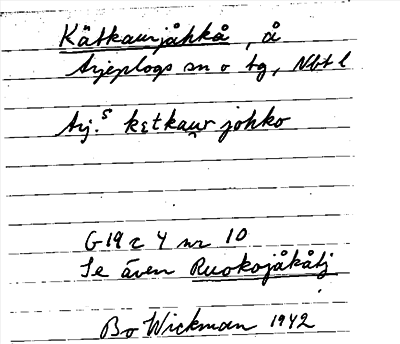 Kätkaurjåhkå, å
Arjeplogs sn o tg, Nbt l
Arj.s kɛtkau̯r johko
G19 c 4 nr 10
Se även Ruokojåkåtj
Bo Wickman 1942